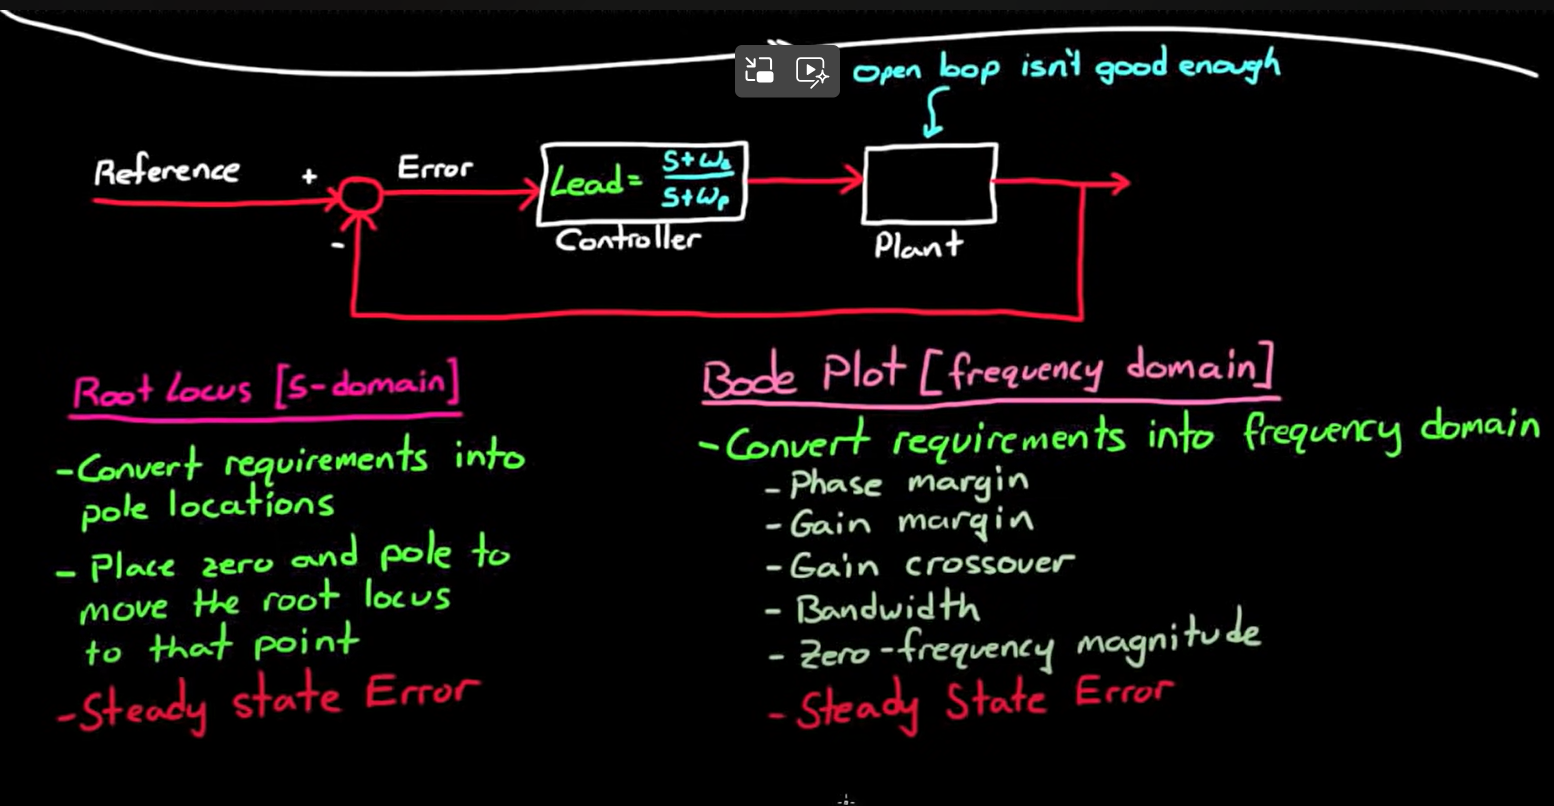 open loop isn't good enough
Reference
+
Error
Lead = s+ωz / s+ωp
-
Controller
Plant
Root Locus [s-domain]
-Convert requirements into
pole locations
- Place zero and pole to
move the root locus
to that point
-Steady state Error
Bode Plot [frequency domain]
-Convert requirements into frequency domain
- Phase margin
- Gain margin
- Gain crossover
- Bandwidth
- Zero-frequency magnitude
- Steady State Error